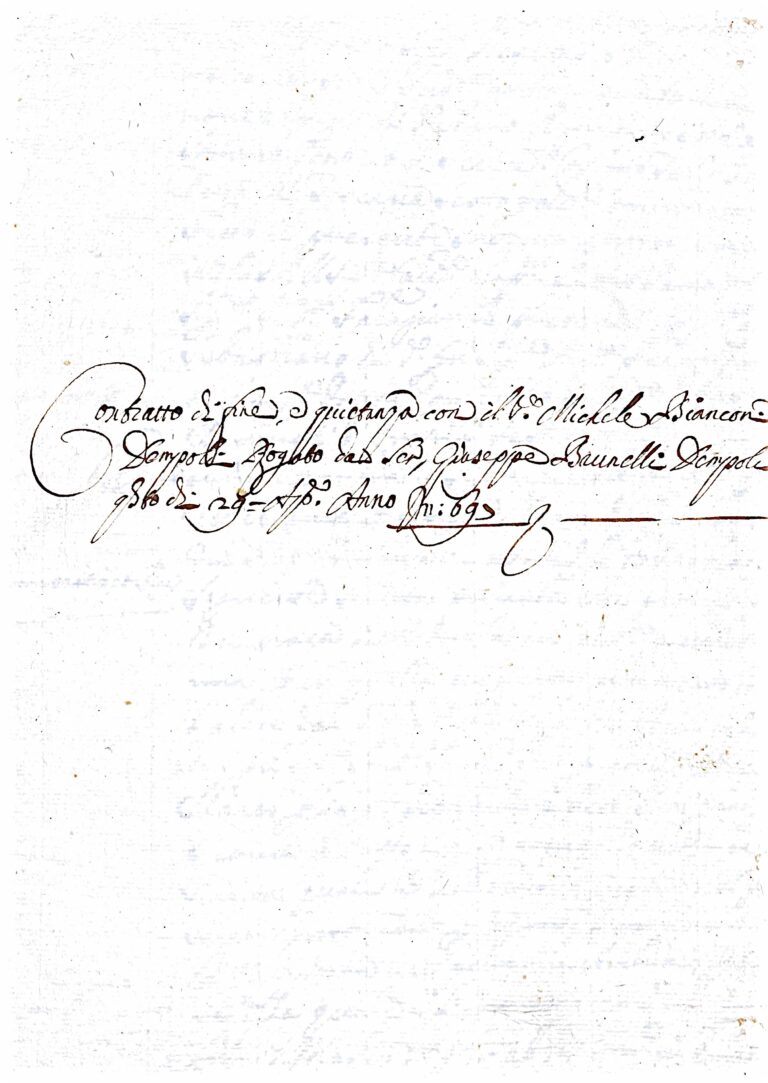 Contratto di fine, e quietanza con il S.r Michele Bianconi
D'empoli: Rogato da Ser, Giuseppe D'empoli
q.sto di: 29 = Ap.e Anno